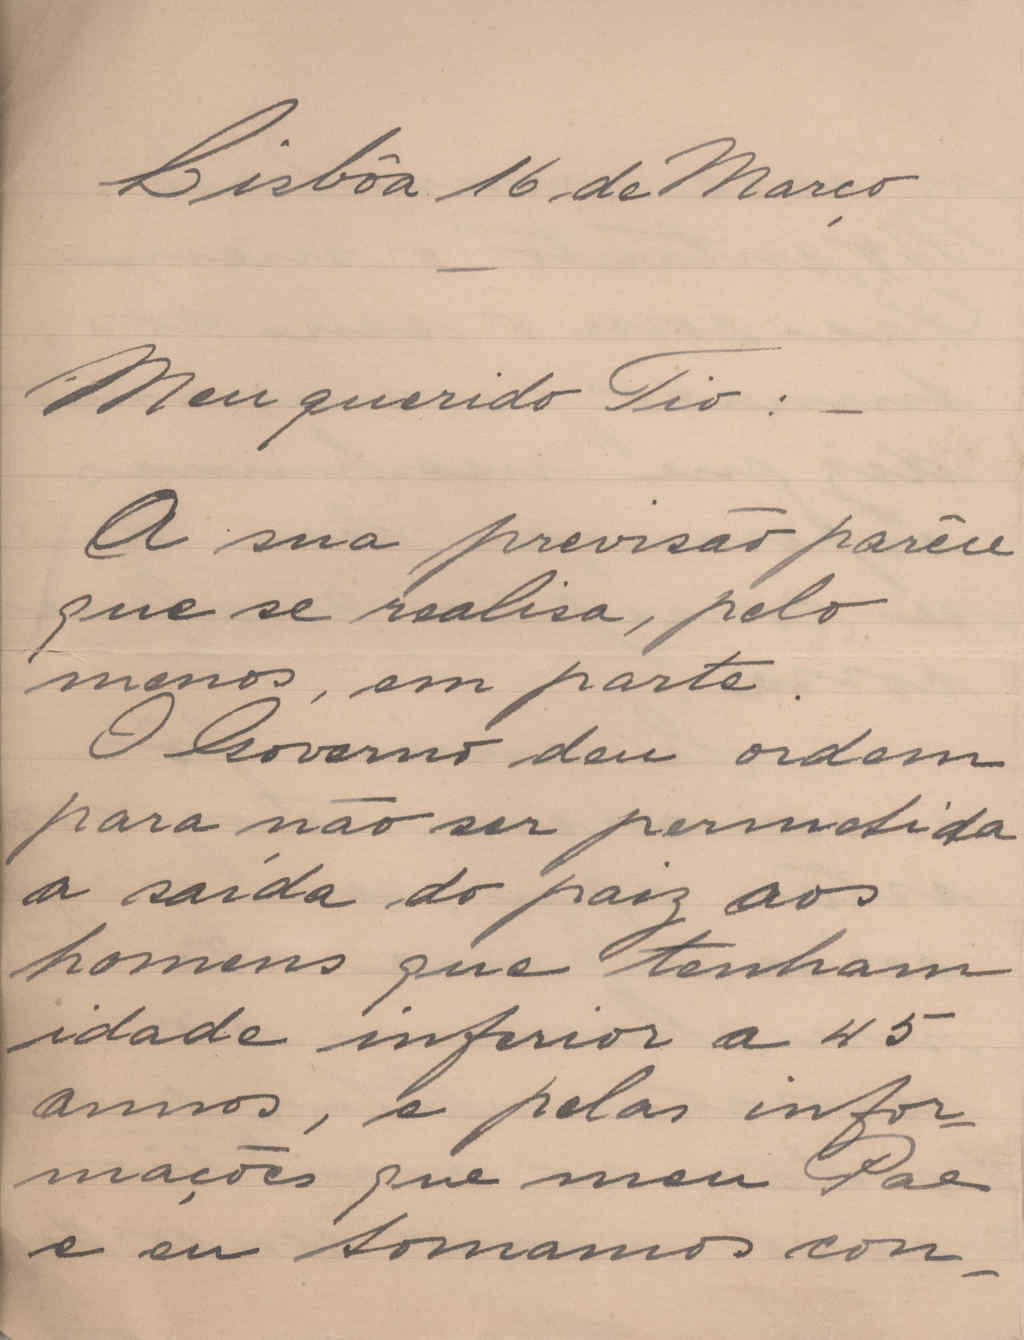 Lisbôa 16 de Março
—
Meu querido Tio : —
A sua previsão parêce
que se realisa, pelo
menos, em parte.
O Governo deu ordem
para não ser permetida
a saída do paiz aos
homens que tenham
idade inferior a 45
annos, e pelas infor-
mações que meu Pae
e eu tomamos con-